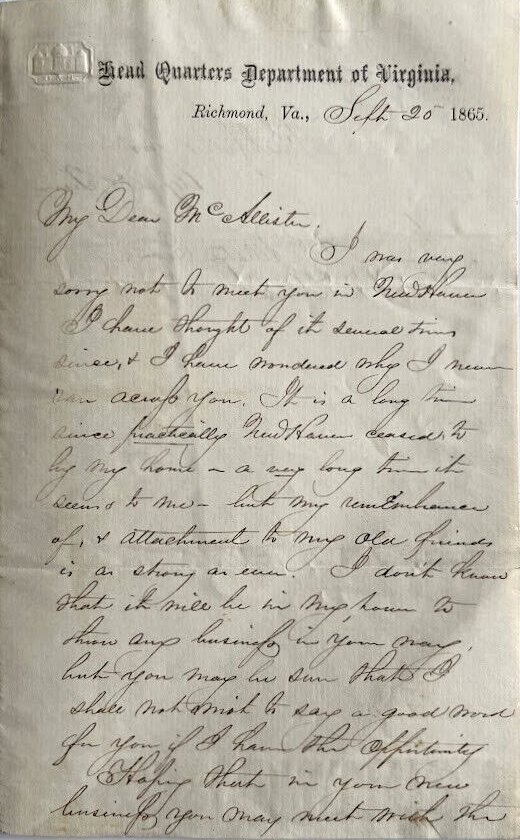 Head Quarters Department of Virginia,
Richmond, Va., Sept 20 1865.
My Dear McAllister,
I was very
sorry not to meet you in New Haven
I have thought of it several times
since, & I have wondered why I never
ran across you. It is a long time
since practically New Haven ceased to
be my home – a very long time it
seems to me – but my remembrance
of, & attachment to my old friends
is as strong as ever. I don't know
that it will be in my power to
throw any business in your way,
but you may be sure that I
shall not omit to say a good word
for you if I have the opportunity
Hoping that in your new
business you may meet with the